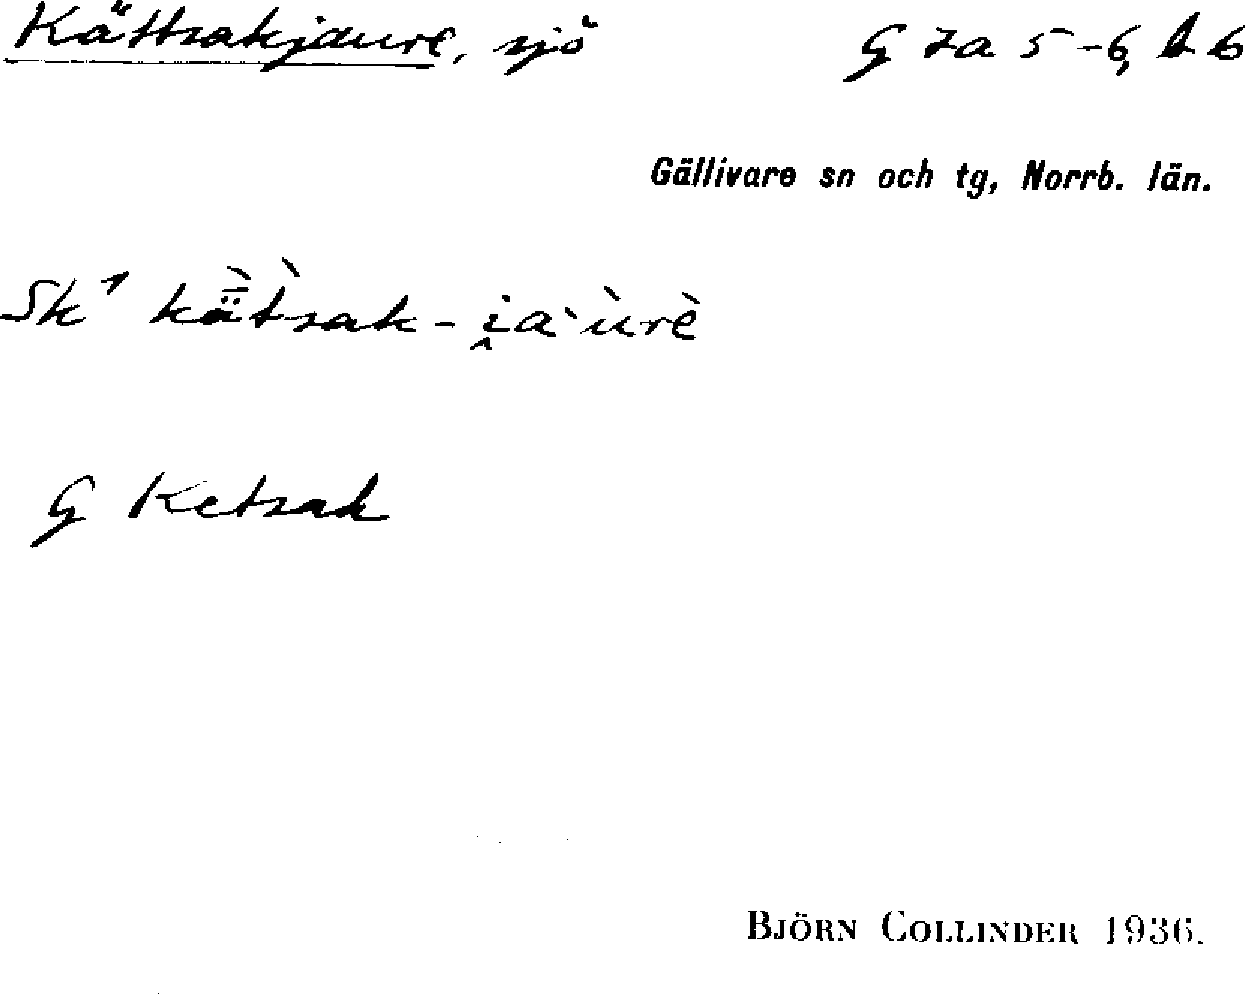 Kättsakjaure, sjö G 7a 5-6, b 6
Gällivare sn och tg, Norrb. län.
Sk¹ kä̀̄t̀sak-i̯a`ùrè
G Ketsak
BJÖRN COLLINDER 1936.